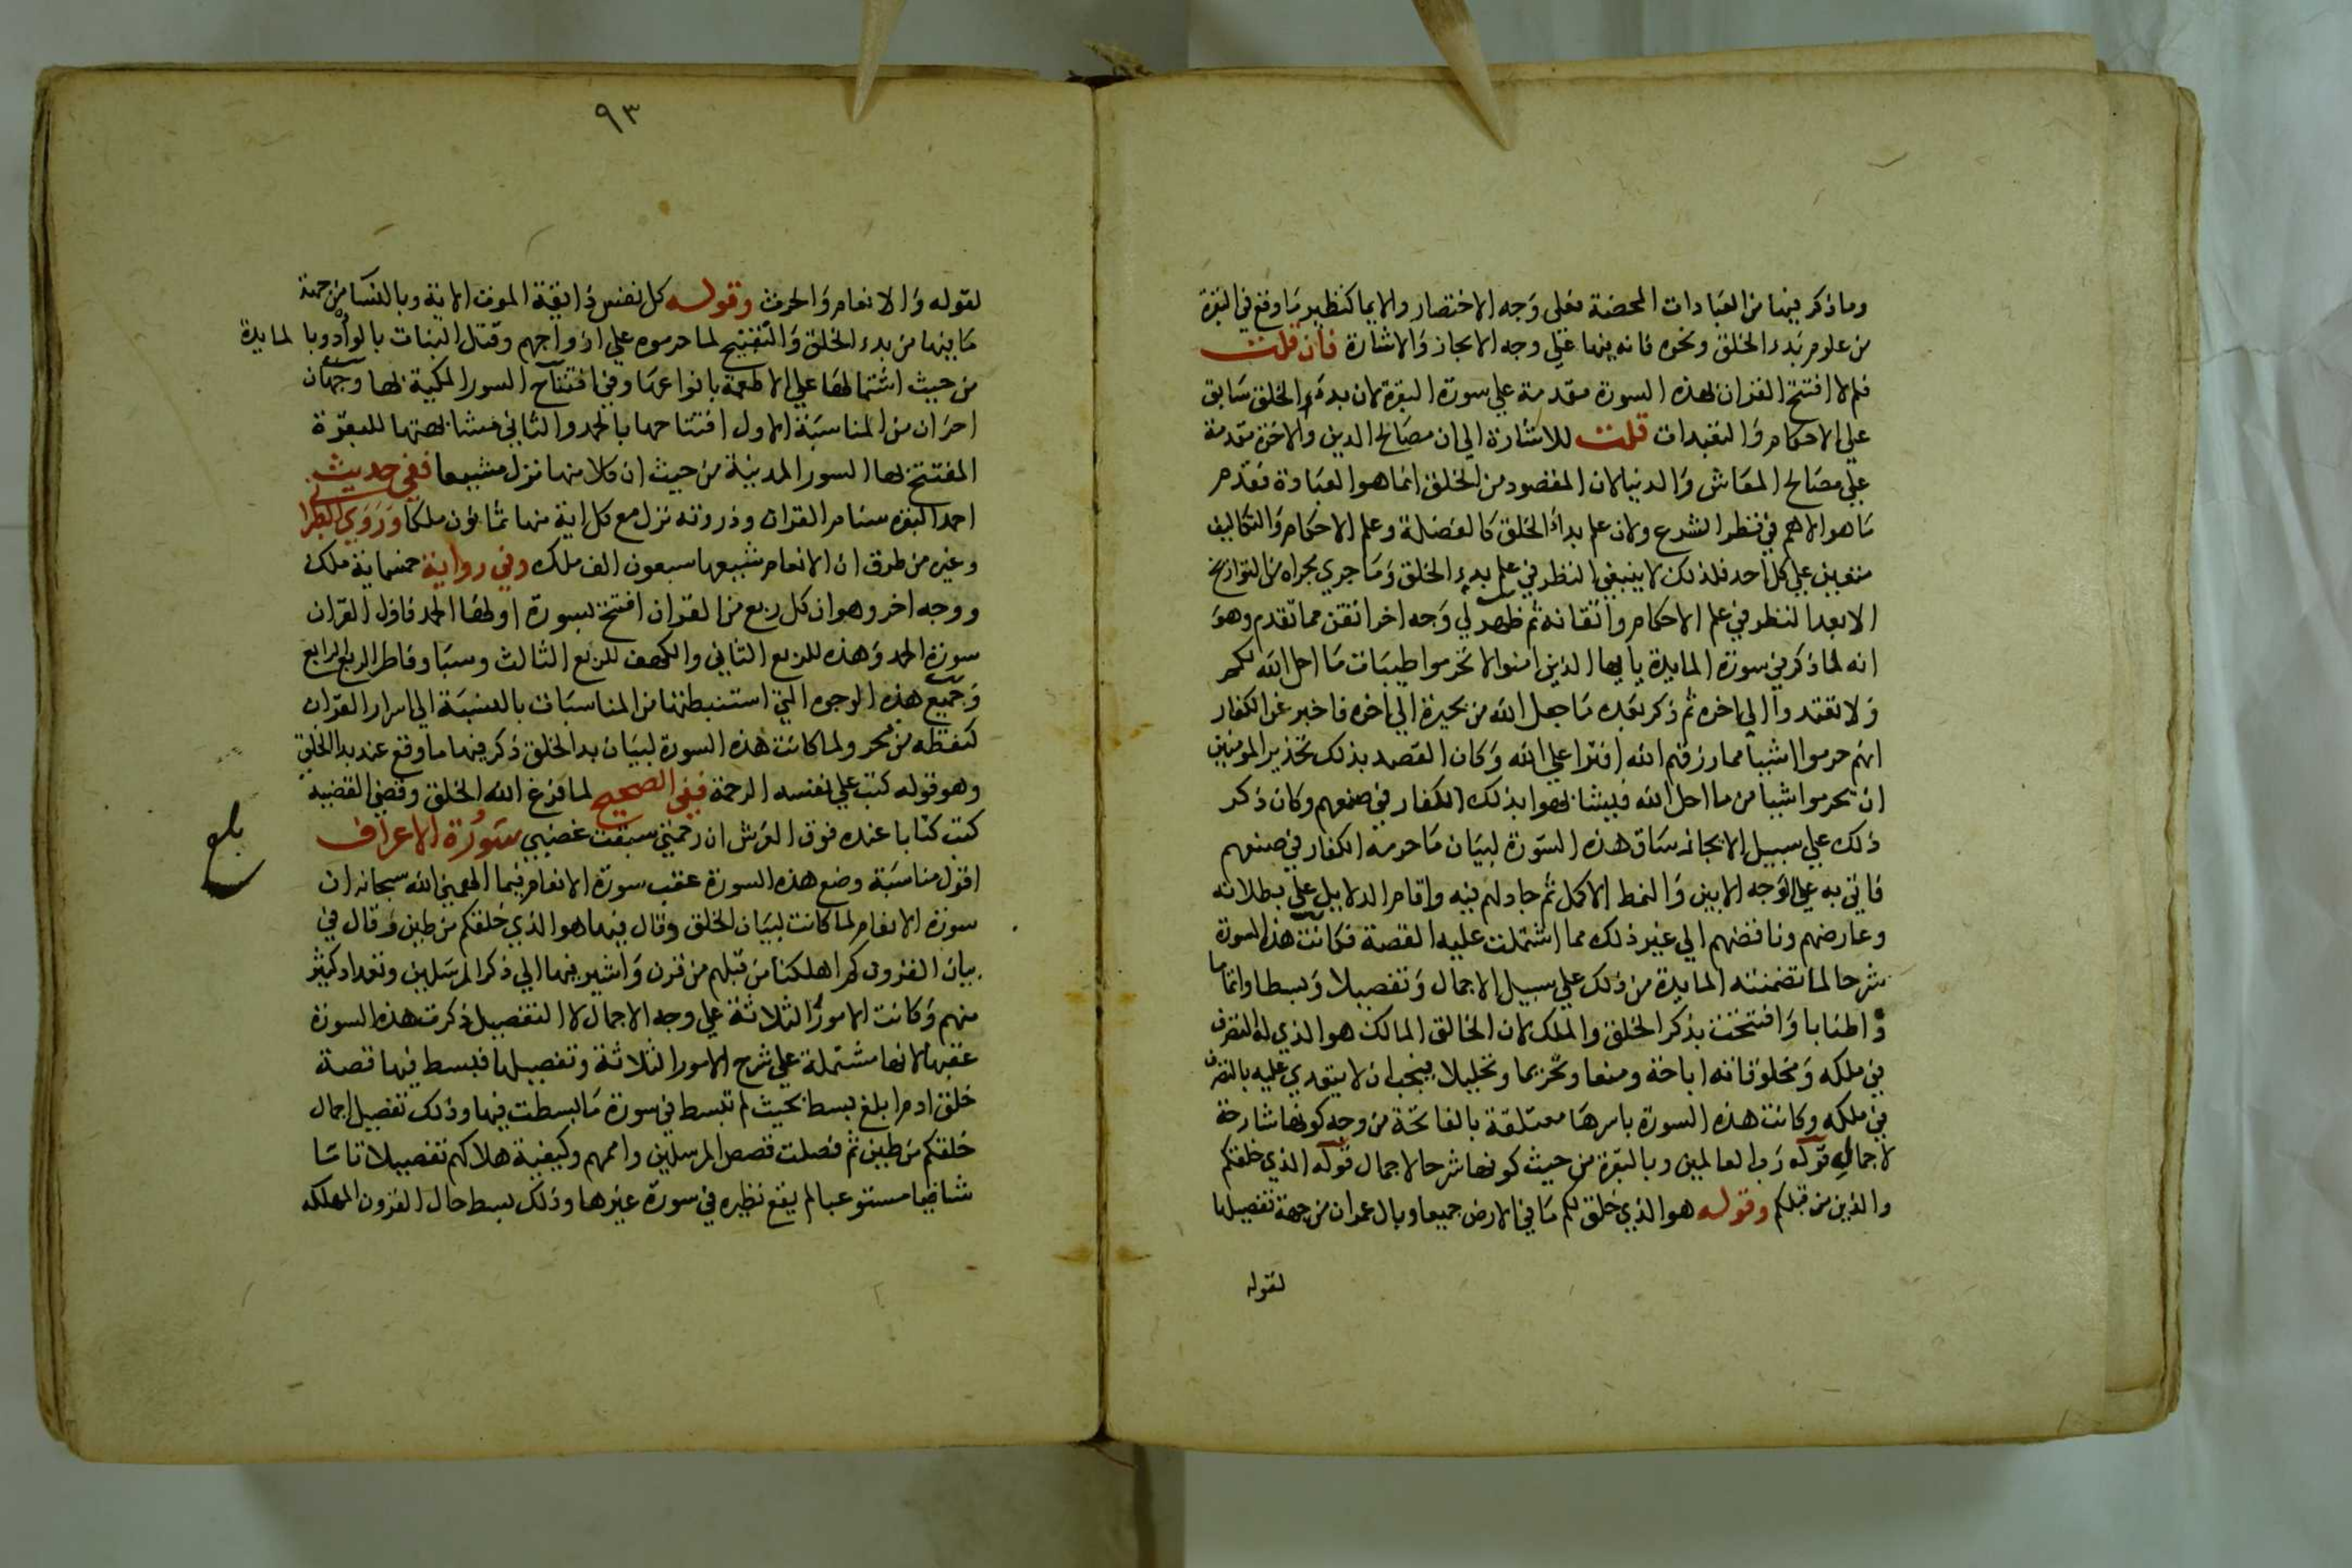 وما ذكر فيها من العبادات المحضة فعلى وجه الاختصار والايما كنظير ما وقع في البقرة
من علوم بدء الخلق ونحوه فانه فيها علي وجه الايجاز والاشارة فان قلت
فلم لا افتتح القران بهذه السورة مقدمة علي سورة البقرة لان بدء الخلق سابق
علي الاحكام والتعبدات قلت للاشارة الي ان مصالح الدين والاخرة مقدمة
علي مصالح المعاش والدنيا لان المقصود من الخلق انما هو العبادة فقدم
ما هو الاهم في نظر الشرع ولان علم بداء الخلق كالفضلة وعلم الاحكام والتكاليف
متعين علي كل احد فلذلك لا ينبغي النظر في علم بدء الخلق وما جري مجراه من التواريخ
الا بعد النظر في علم الاحكام واتقانه ثم ظهر لي وجه اخر اتقن مما تقدم وهو
انه لما ذكر في سورة المايدة يا يها الذين امنوا لا تحرموا طيبات ما احل الله لكم
ولا تعتدوا الي اخره ثم ذكر بعده ما جعل الله من بحيرة الي اخره فاخبر عن الكفار
انهم حرموا اشيا مما رزقهم الله افترا علي الله وكان القصد بذلك تحذير المومنين
ان يحرموا شيا من ما احل الله فيشابهوا بذلك الكفار في صنعهم وكان ذكر
ذلك علي سبيل الايجاز ساق هذه السورة لبيان ما حرمه الكفار في صنعهم
فاتي به علي الوجه الابين والنمط الاكمل ثم جادلهم فيه واقام الدلايل علي بطلانه
وعارضهم وناقضهم الي غير ذلك مما اشتملت عليه القصة فكانت هذه السورة
شرحا لما تضمنته المايدة من ذلك علي سبيل الاجمال وتفصيلا وبسطا واتماما
واطنابا وافتتحت بذكر الخلق والملك لان الخالق المالك هو الذي له التصرف
في ملكه ومخلوقاته اباحة ومنعا وتحريما وتحليلا فيجب ان لا يتعدي عليه بالتصرف
في ملكه وكانت هذه السورة باسرها متعلقة بالفاتحة من وجه كونها شارحة
لاجمال قوله رب العالمين وبالبقرة من حيث كونها شرحا لاجمال قوله الذي خلقكم
والذين من قبلكم وقوله هو الذي خلق لكم ما في الارض جميعا وبال عمران من جهة تفصيلها
لقوله
٩٣
لقوله والانعام والحرث وقوله كل نفس ذايقة الموت الاية وبالنسا من جهة
ما فيها من بدء الخلق والتقبيح لما حرموه علي ازواجهم وقتل البنات بالواد وبا لمايدة
من حيث اشتمالها علي الاطعمة بانواعها وفي افتتاح السور المكية بها وجهان
اخران من المناسبة الاول افتتاحها بالحمد والثاني مشابهتها للبقرة
المفتتح بها السور المدنية من حيث ان كلا منها نزل مشيعا ففي حديث
احمد البقره سنام القران وذروته نزل مع كل اية منها ثمانون ملكا وروي الطبراني
وغيره من طرق ان الانعام شيعها سبعون الف ملك وفي رواية خمسماية ملك
ووجه اخر وهو ان كل ربع من القران افتتح بسورة اولها الحمد فاول القران
سورة الحمد وهذه للربع الثاني والكهف للربع الثالث وسبا وفاطر للربع الرابع
وجميع هذه الوجوه التي استنبطتها من المناسبات بالنسبة الي اسرار القران
كنقطة من بحر ولما كانت هذه السورة لبيان بدا الخلق ذكر فيها ما وقع عند بدا الخلق
وهو قوله كتب علي نفسه الرحمة ففي الصحيح لما فرغ الله الخلق وقضي القضية
كتب كتابا عنده فوق العرش ان رحمتي سبقت غضبي سورة الاعراف
بلغ
اقول مناسبة وضع هذه السورة عقب سورة الانعام فيما الهمني الله سبحانه ان
سورة الانعام لما كانت لبيان الخلق وقال فيها هو الذي خلقكم من طين وقال في
بيان القرون كم اهلكنا من قبلهم من قرن واشير فيها الي ذكر المرسلين وتعداد كثير
منهم وكانت الامور الثلاثة علي وجه الاجمال لا التفصيل ذكرت هذه السورة
عقبها لانها مشتملة علي شرح الامور الثلاثة وتفصيلها فبسط فيها قصة
خلق ادم ابلغ بسط بحيث لم تبسط في سورة ما بسطت فيها وذلك تفصيل اجمال
خلقكم من طين ثم فصلت قصص المرسلين واممهم وكيفية هلاكهم تفصيلا تاما
شافيا مستوعبا لم يقع نظيره في سورة غيرها وذلك بسط حال القرون المهلكه